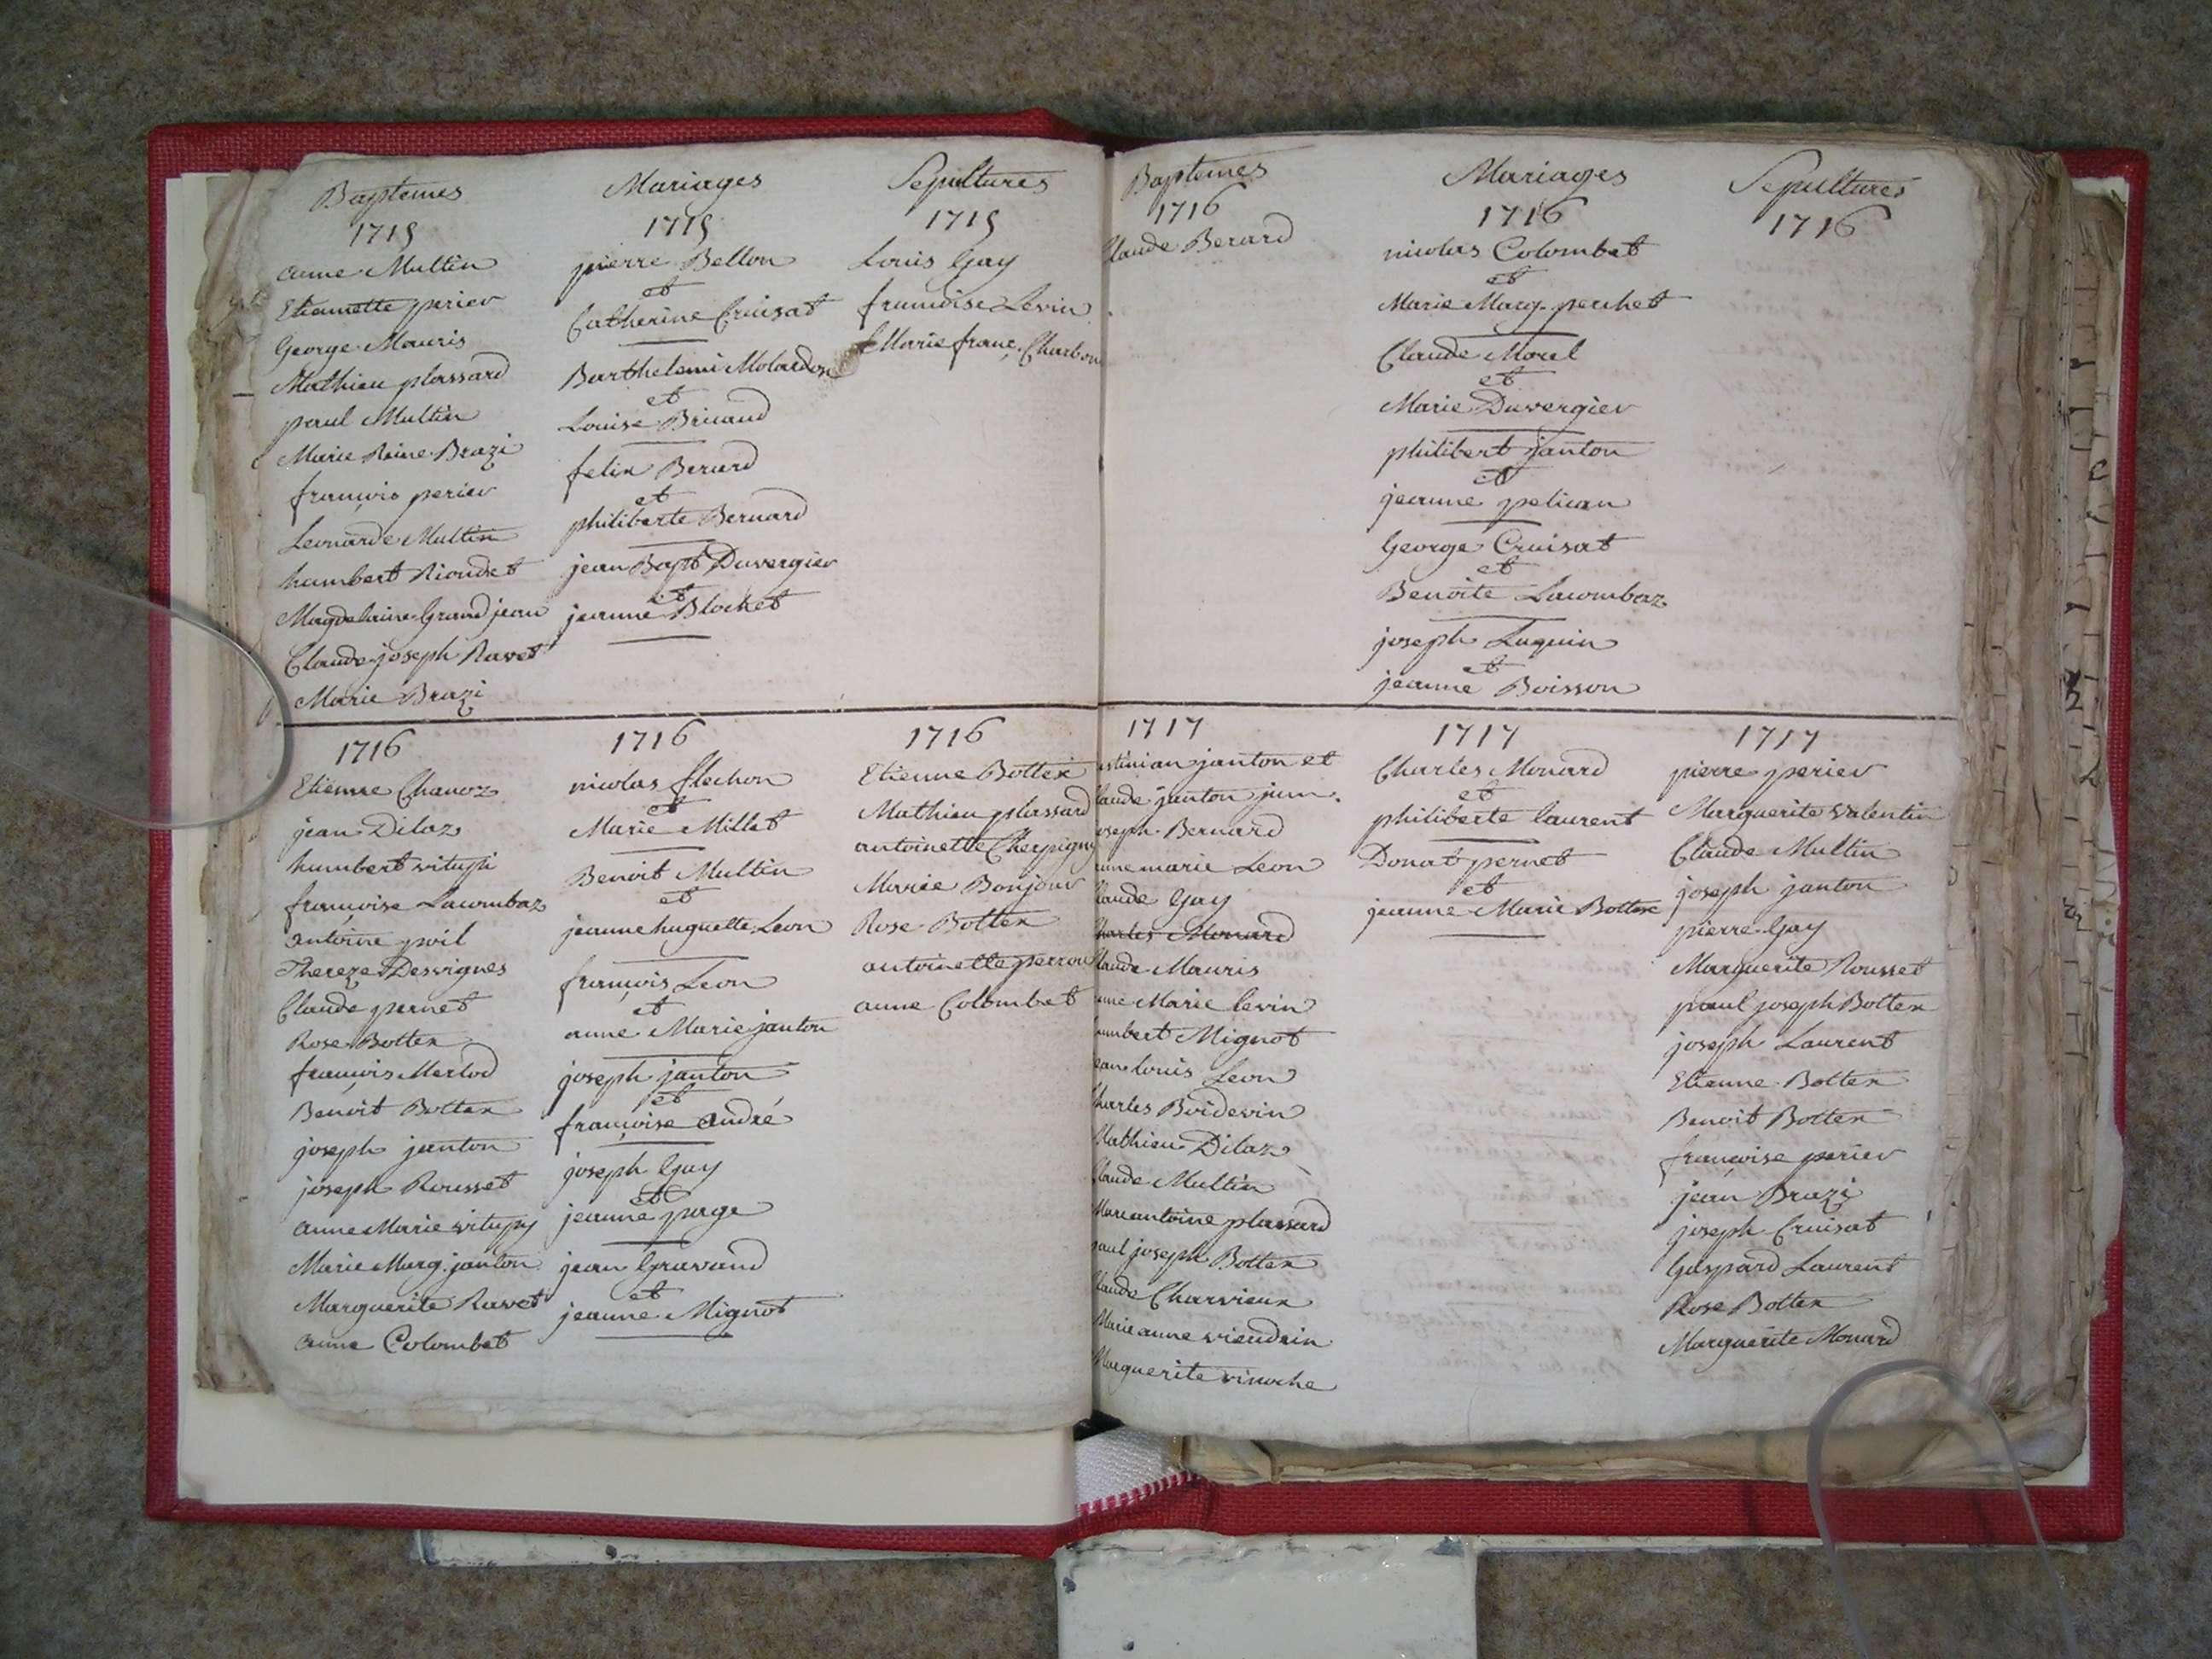 Baptemes
1715
anne Multin
Etiennette perier
George Mauris
Mathieu plassard
paul Multin
Marie Reine Brazi
françois perier
Leonarde Multin
humbert Rioudet
Magdelaine Grandjean
Claude joseph Ravet
Marie Brazi
Mariages
1715
pierre Bellon
et
Catherine Cruisat
Barthelemi Molardon
et
Louise Briaud
felix Berard
et
philiberte Bernard
jean Bapt Duvergier
et
jeanne Blochet
Sepultures
1715
Louis Gay
francoise Levin
Marie franç. Charbon
1716
Etienne Chanoz
jean Dilaz
humbert vitupi
françoise Lacombaz
antoine poil
Thereze Desvignes
Claude pernet
Rose Bottex
françois Merlod
Benoit Bottex
joseph janton
joseph Rousset
anne Marie vitupy
Marie Marg. janton
Marguerite Ravet
anne Colombet
1716
nicolas flechon
et
Marie Millet
Benoit Multin
et
jeanne huguette Leon
françois Leon
et
anne Marie janton
joseph janton
et
françoise andré
joseph Gay
et
jeanne page
jean Gravand
et
jeanne Mignot
1716
Etienne Bottex
Mathieu plassard
antoinette Cherpigny
Marie Bonjour
Rose Bottex
antoinette perrou
anne Colombet
Baptemes
1716
Claude Berard
Mariages
1716
nicolas Colombet
et
Marie Marg. perchet
Claude Morel
et
Marie Duvergier
philibert janton
et
jeanne pelican
George Cruisat
et
Benoite Lacombaz
joseph Luquin
et
jeanne Boisson
Sepultures
1716
1717
janton et
laude janton jum.
oseph Bernard
anne marie Leon
laude Gay
harles Monard
laude Mauris
nne Marie levin
umbert Mignot
ean louis Leon
harles Boidevin
Mathieu Dilaz
laude Multin
Marc antoine plassard
paul joseph Bottex
laude Charvieux
Marie anne viendrin
Marguerite vinoche
1717
Charles Monard
et
philiberte laurent
Donat pernet
et
jeanne Marie Bottex
1717
pierre perier
Marguerite valentin
Claude Multin
joseph janton
pierre Gay
Marguerite Rousset
paul joseph Bottex
joseph Laurent
Etienne Bottex
Benoit Bottex
françoise perier
jean Brazi
joseph Cruisat
Gaspard Laurent
Rose Bottex
Marguerite Monard